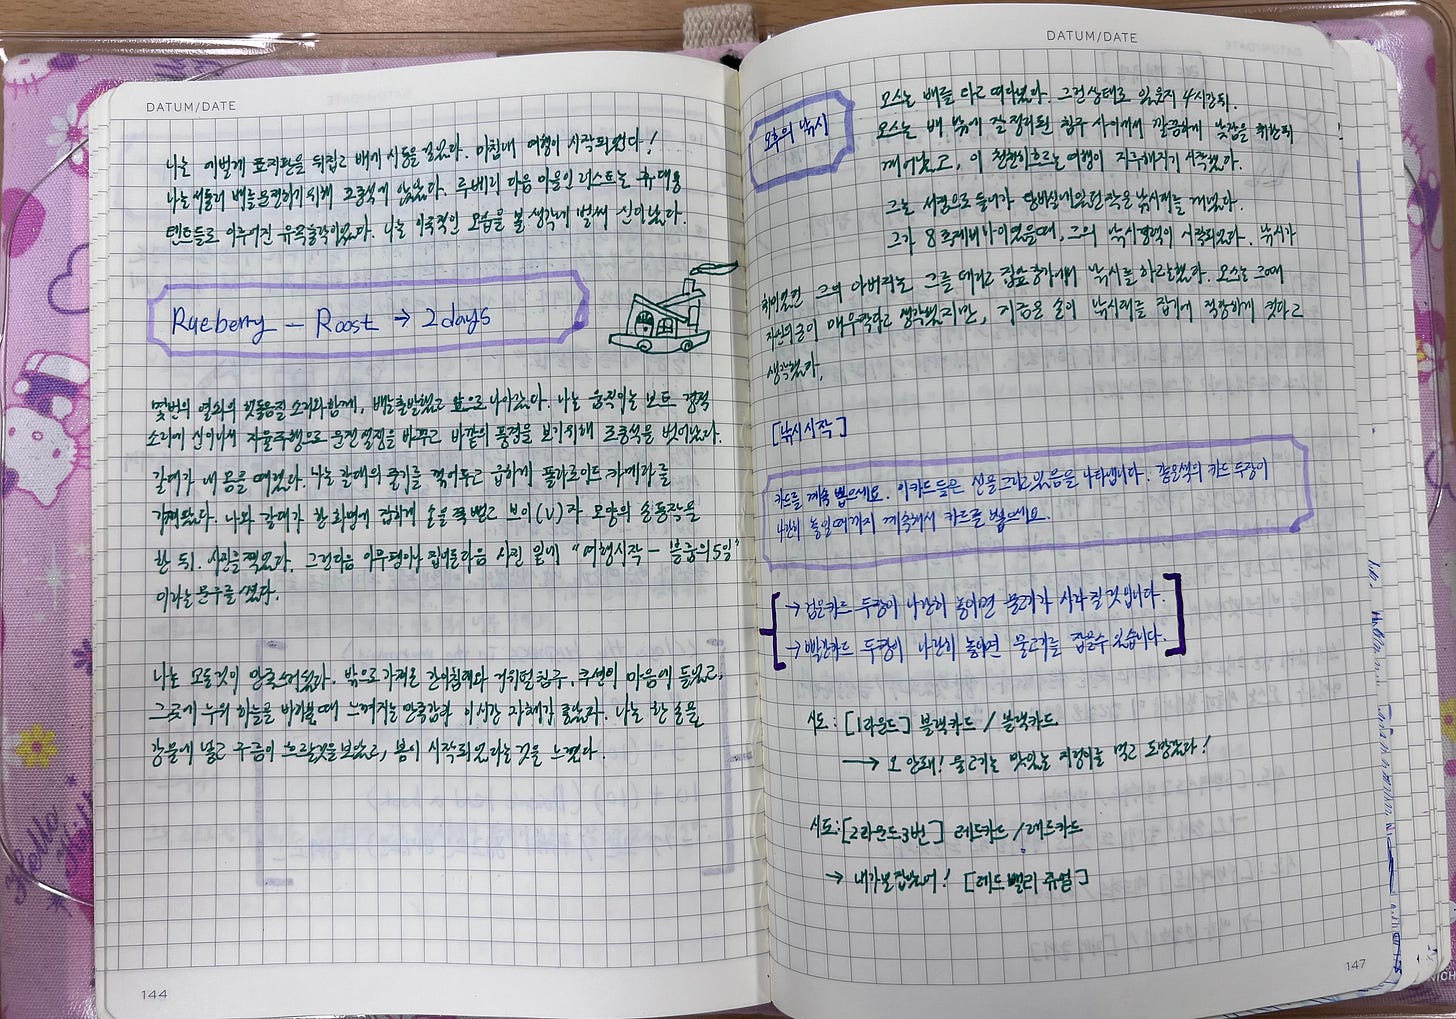 DATUM/DATE
나는 어렵게 표지판을 뒤집고 배에 시동을 걸었다. 마침내 여행이 시작되었다!
나는 서둘러 배를 운전하기 위해 조종석에 앉았다. 루베리 다음 마을인 러스트는 휴대용
텐트들로 이루어진 유목촌락이었다. 나는 이국적인 모습을 볼 생각에 벌써 신이났다.
Ryeberry – Roost → 2days
몇번의 열쇠의 헛돌음질 소리와 함께, 배는 출발했고 앞으로 나아갔다. 나는 움직이는 보트 경적
소리에 신이나서 자율주행으로 운전 설정을 바꾸고 바깥의 풍경을 보기위해 조종석을 벗어났다.
갈대가 내 몸을 때렸다. 나는 갈대의 줄기를 꺾어두고 급하게 폴라로이드 카메라를
가져왔다. 나와 갈대가 한 화면에 잡히게 손을 쭉 뻗고 브이(V)자 모양의 손동작을
한 뒤, 사진을 찍었다. 그런다음 아무펜이나 집어든다음 사진 밑에 "여행시작 – 블룸의 5일"
이라는 문구를 썼다.
나는 모든것이 만족스러웠다. 밖으로 가져온 간이침대와 거위털침구, 쿠션이 마음에 들었고,
그곳에 누워 하늘을 바라볼때 느껴지는 만족감과 이시간 자체가 좋았다. 나는 한 손을
강물에 넣고 구름이 흐르는것을 보았고, 봄이 시작되었다는 것을 느꼈다.
144
DATUM/DATE
오후의 낚시
오스는 배를 타고 떠다녔다. 그런상태로 있은지 4시간 뒤.
오스는 배 밖에 잘 정리된 침구 사이에서 깔끔하게 낮잠을 취한뒤
깨어났고, 이 천천히흐르는 여행이 지루해지기 시작했다.
그는 시험으로 들어가 있던 작은 낚시대를 꺼냈다.
그가 8주째 아이였을때, 그의 낚시경력이 시작되었다. 낚시가
취미였던 그의 아버지는 그를 데리고 집앞 강가에서 낚시를 하곤했다. 오스는
자신의 손이 매우 작다고 생각했지만, 지금은 손이 낚시대를 잡기에 적당하게 컸다고
생각했다.
[낚시시작]
카드를 계속 뽑으세요. 이카드들은 선을 그리고 있음을 나타냅니다. 같은색의 카드 두장이
나란히 놓일때까지 계속해서 카드를 뽑으세요.
→ 검은카드 두장이 나란히 놓이면 물고기가 사라질 것입니다.
→ 빨간카드 두장이 나란히 놓이면 물고기를 잡을수 있습니다.
시도: [1라운드] 블랙카드 / 블랙카드
→ 오 안돼! 물고기는 맛있는 지렁이를 먹고 도망갔다!
시도: [2라운드3번] 레드카드 / 레드카드
→ 내가널잡았어! [레드 밸리 쥬얼]
147
Hello